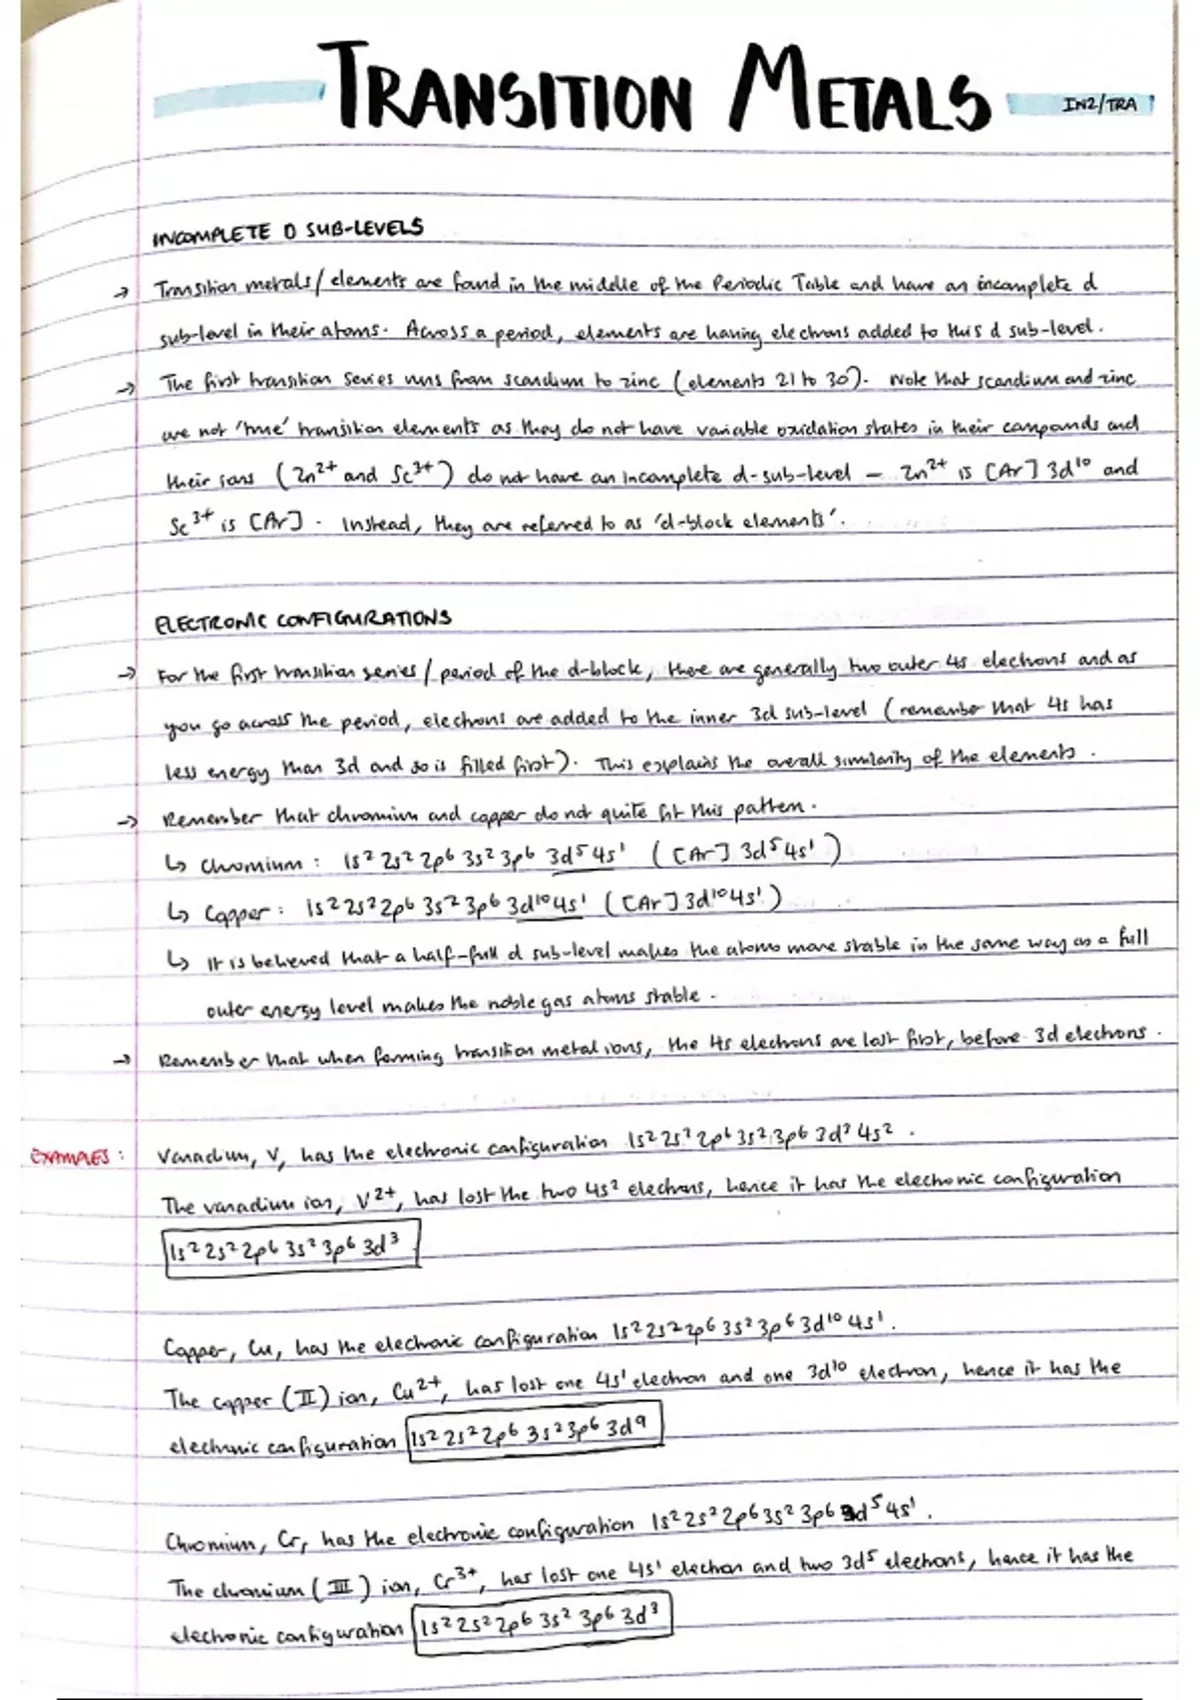 TRANSITION METALS
IN2/TRA
INCOMPLETE D SUB-LEVELS
→ Transition metals/elements are found in the middle of the Periodic Table and have an incomplete d
sub-level in their atoms. Across a period, elements are having electrons added to this d sub-level.
→ The first transition series runs from scandium to zinc (elements 21 to 30). Note that scandium and zinc
are not 'true' transition elements as they do not have variable oxidation states in their compounds and
their ions (Zn²⁺ and Sc³⁺) do not have an incomplete d-sub-level – Zn²⁺ is [Ar] 3d¹⁰ and
Sc³⁺ is [Ar]. Instead, they are referred to as 'd-block elements'.
ELECTRONIC CONFIGURATIONS
→ For the first transition series / period of the d-block, there are generally two outer 4s electrons and as
you go across the period, electrons are added to the inner 3d sub-level (remember that 4s has
less energy than 3d and so is filled first). This explains the overall similarity of the elements.
→ Remember that chromium and copper do not quite fit this pattern.
↳ Chromium: 1s² 2s² 2p⁶ 3s² 3p⁶ 3d⁵ 4s¹ ([Ar] 3d⁵ 4s¹)
↳ Copper: 1s² 2s² 2p⁶ 3s² 3p⁶ 3d¹⁰ 4s¹ ([Ar] 3d¹⁰ 4s¹)
↳ It is believed that a half-full d sub-level makes the atoms more stable in the same way as a full
outer energy level makes the noble gas atoms stable.
→ Remember that when forming transition metal ions, the 4s electrons are lost first, before 3d electrons.
EXAMPLES: Vanadium, V, has the electronic configuration 1s² 2s² 2p⁶ 3s² 3p⁶ 3d³ 4s².
The vanadium ion, V²⁺, has lost the two 4s² electrons, hence it has the electronic configuration
1s² 2s² 2p⁶ 3s² 3p⁶ 3d³
Copper, Cu, has the electronic configuration 1s² 2s² 2p⁶ 3s² 3p⁶ 3d¹⁰ 4s¹.
The copper (II) ion, Cu²⁺, has lost one 4s¹ electron and one 3d¹⁰ electron, hence it has the
electronic configuration 1s² 2s² 2p⁶ 3s² 3p⁶ 3d⁹
Chromium, Cr, has the electronic configuration 1s² 2s² 2p⁶ 3s² 3p⁶ 3d⁵ 4s¹.
The chromium (III) ion, Cr³⁺, has lost one 4s¹ electron and two 3d⁵ electrons, hence it has the
electronic configuration 1s² 2s² 2p⁶ 3s² 3p⁶ 3d³